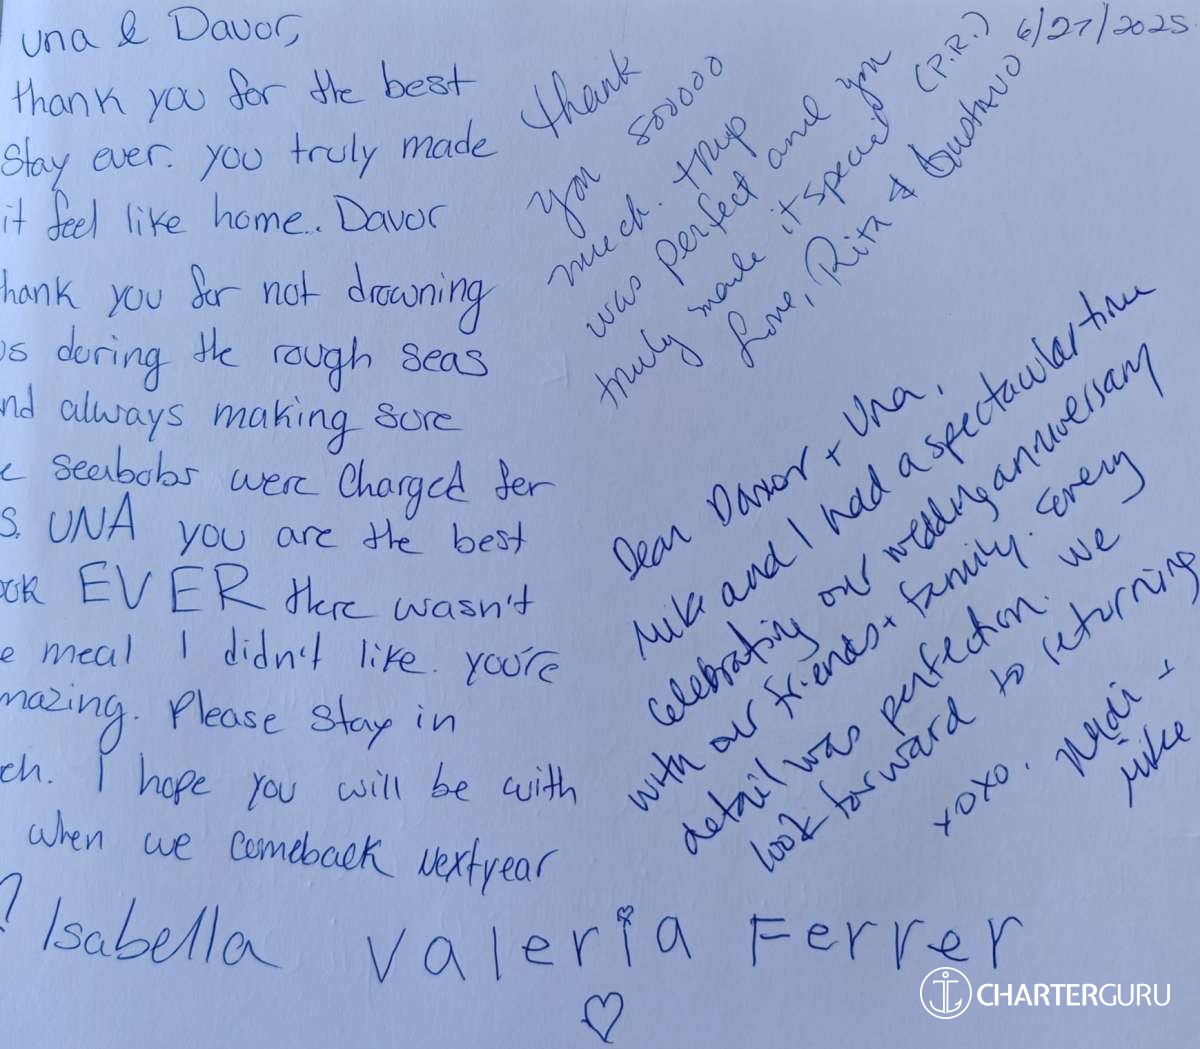 Una & Davor,
thank you for the best
Stay ever. you truly made
it feel like home.. Davor
hank you for not drowning
us during the rough seas
nd always making sure
e seabobs were charged for
s. UNA you are the best
ook EVER there wasn't
e meal I didn't like. you're
mazing. Please stay in
ch. I hope you will be with
when we comeback next year
? Isabella Valeria Ferrer
6/27/2025
thank
you sooooo
much. trip
was perfect and you
truly made it special (P.R.)
Love, Rita & Gustavo
Dear Davor + Una,
Mike and I had a spectacular time
celebrating our wedding anniversary
with our friends + family. Every
detail was perfection. We
look forward to returning
xoxo. Madi +
Mike
CHARTERGURU